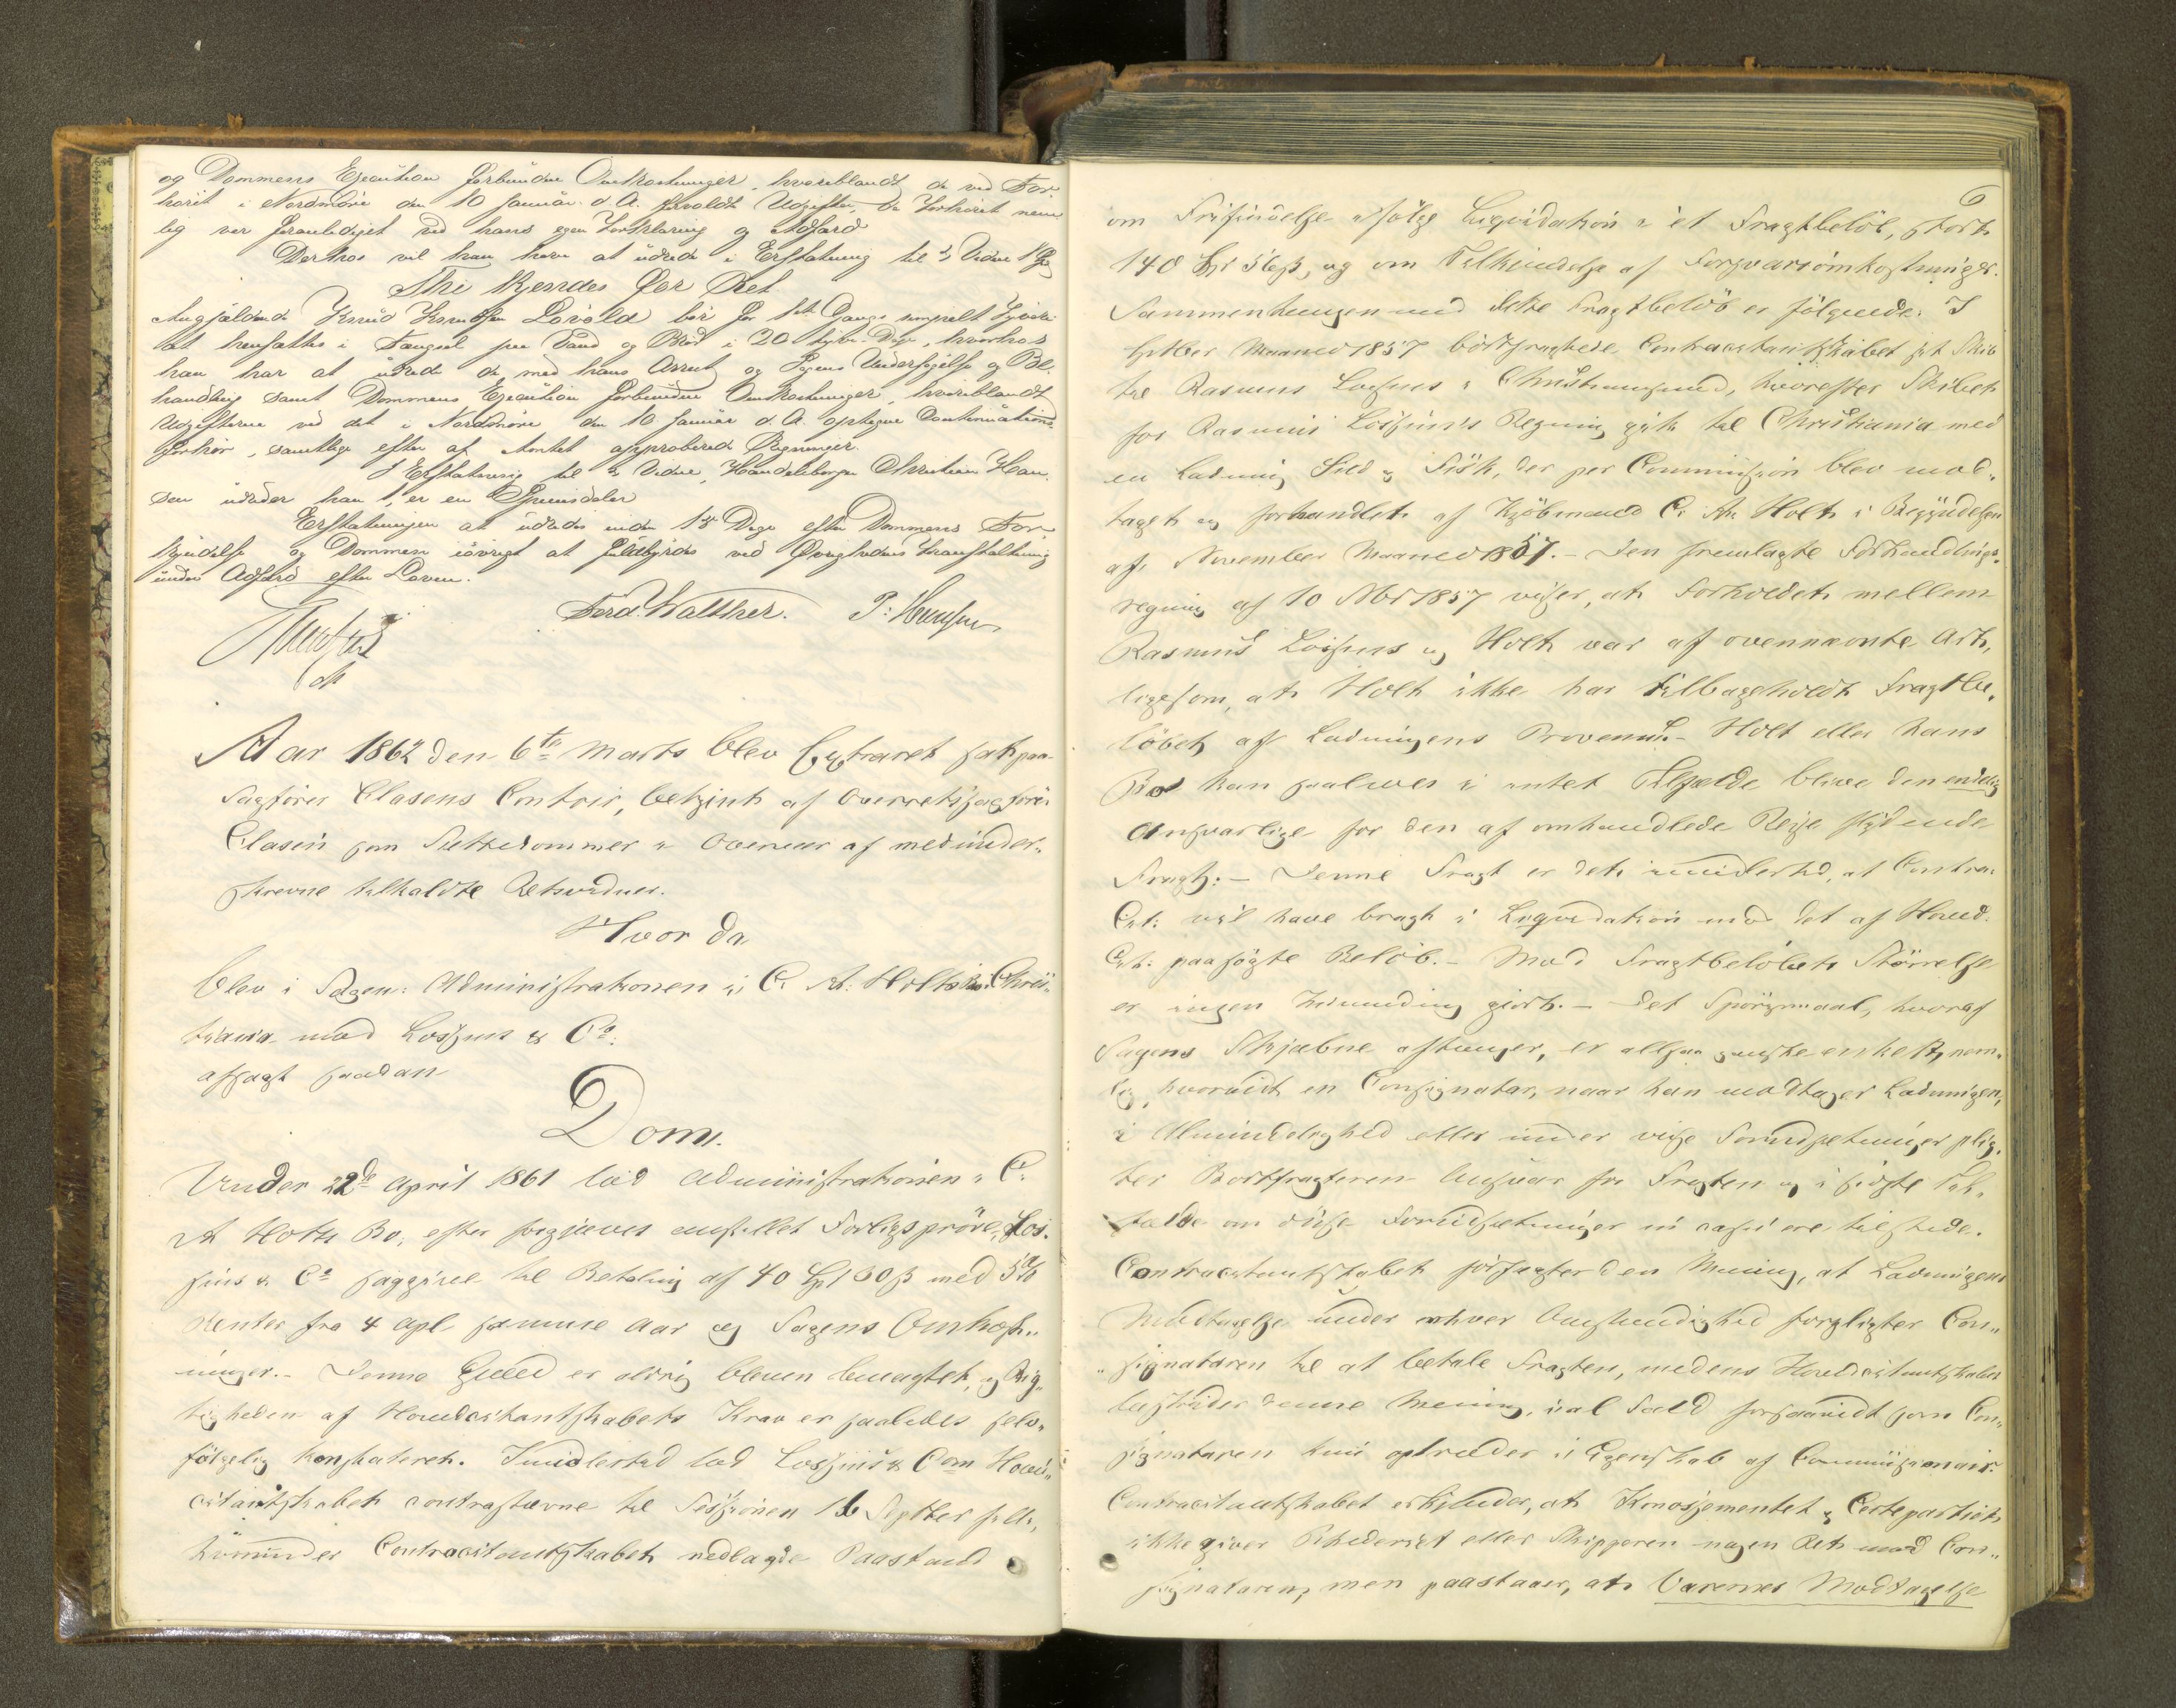 og Dommens Execution forbundne Omkostninger, hvoriblandt de ved For-
höret i Nordmöre den 10 Januar d. A. forvoldte Udgifter, da Forhöret nem
lig var foranlediget ved hans egen Forklaring og Adfærd
Derhos vil han have at udrede i Erstatning til Vidne 1 Spd
Thi kjendes for Ret
Angjældende Knud Knudsen Lövold bör for 1ste Gang simpelt Tyveri
at hensættes i Fængsel paa Vand og Bröd i 20 tyve Dage, hvorhos
han har at udrede de med hans Arrest og Sagens Undersögelse og Be-
handling samt Dommens Execution forbundne Omkostninger, hvoriblandt
Udgifterne ved det i Nordmöre den 10 Januar d. A. optagne Continuations-
forhör, samtlige efter af Amtet approberede Regninger.
I Erstatning til Vidne, Handelsborger Christian Han-
sen udreder han 1, en Speciesdaler
Erstatningen at udredes inden 15 Dage efter Dommens For-
kyndelse og Dommen iövrigt at fuldbyrdes ved Övrighedens Foranstaltning
under Adfærd efter Loven.
Ferd. Walther. P. Hansen
Aar 1862 den 6te Marts blev Extraret sat paa
Sagförer Clasens Contoir, betjent af Overretssagförer
Clasen som Sættedommer i Overvær af medunder-
skrevne tilkaldte Retsvidner.
Hvor da
blev i Sagen: Administrationen i C. A. Holts Bo i Chris-
tiania mod Lossius & Co.
afsagt saadan
Dom.
Under 22de April 1861 lod Administrationen i C.
A Holts Bo, efter forgjæves anstillet Forligspröve, Los-
sius & Co sagsgive til Betaling af 40 Spd 60 ß med 5%
Renter fra 4 Apl samme Aar og Sagens Omkost-
ninger. - Denne Gjæld er aldrig bleven benægtet, og Rig-
tigheden af Hovedcitantskabets Krav er saaledes selv-
fölgelig konstateret. Imidlertid lod Lossius & Com Hoved-
citantskabet contrastævne til Sessionen 16 Septber s. A.,
hvorunder Contracitantskabet nedlagde Paastand
6
om Frifindelse ifölge Liqvidation i et Fragtbelöb, stort
140 Spd 56 ß, og om Tilkjendelse af Forsvarsomkostninger.
Sammenhængen med dette Fragtbelöb er fölgende: I
Septber Maaned 1857 bortfragtede Contracitantskabet sit Skib
til Rasmus Lossius i Christianssund, hvorefter Skibet
for Rasmus Lossius's Regning gik til Christiania med
en Ladning Sild og Fisk, der per Commission blev mod-
taget og forhandlet af Kjöbmand C. A. Holt i Begyndelsen
af November Maaned 1857. - Den fremlagte Forhandlings-
regning af 10 Nbr 1857 viser, at Forholdet mellem
Rasmus Lossius og Holt var af ovennævnte Art,
ligesom, at Holt ikke har tilbageholdt Fragtbe-
löbet af Ladningens Provenue. - Holt eller hans
Bo kan saaledes i intet Tilfælde blive den endelig
Ansvarlige for den af omhandlede Reise flydende
Fragt. - Denne Fragt er det imidlertid, at Contra-
Cit. vil have bragt i Liqvidation mod det af Hoved-
Cit. paasögte Belöb. - Mod Fragtbelöbets Störrelse
er ingen Indvending gjort. - Det Spörgsmaal, hvoraf
Sagens Skjæbne afhænger, er altsaa ganske enkelt, nem-
lig, hvorvidt en Consignatar, naar han modtager Ladningen,
i Almindelighed eller under visse Forudsætninger plig-
ter Bortfragteren Ansvar for Fragten og i sidste Til-
fælde om disse Forudsætninger in casu ere tilstede.
Contracitantskabet forfægter den Mening, at Ladningens
Modtagelse under enhver Omstændighed forpligter Con-
signataren til at betale Fragten, medens Hovedcitantskabet
bestrider denne Mening, ial Fald forsaavidt som Con-
signataren kun optræder i Egenskab af Commissionair.
Contracitantskabet erkjender, at Konossementet og Certepartiet
ikke giver Rhederiet eller Skipperen nogen Ret mod Con-
signataren, men paastaaer, at Varernes Modtagelse